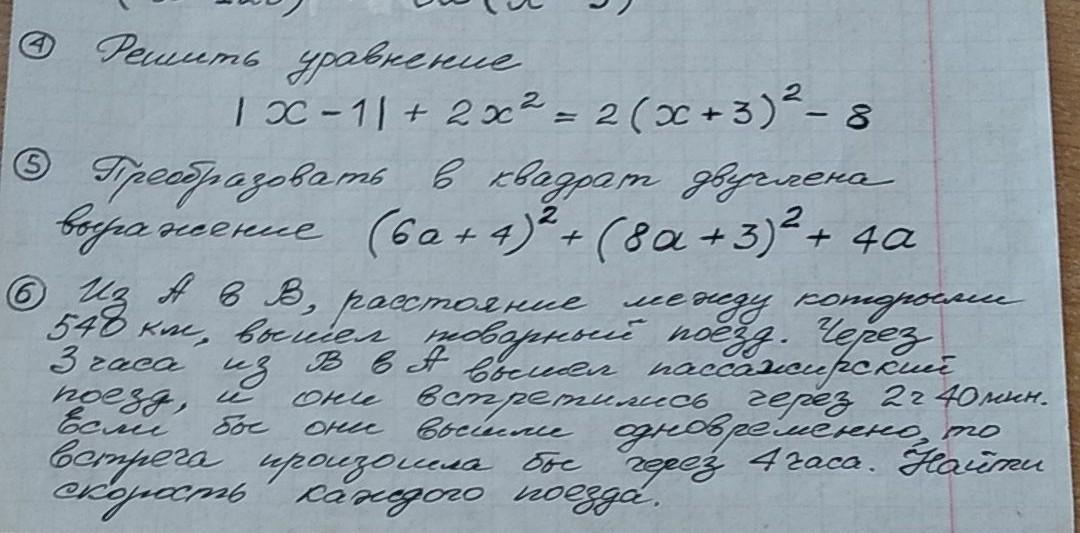 ④ Решить уравнение
|x - 1| + 2x² = 2(x + 3)² - 8
⑤ Преобразовать в квадрат двучлена
выражение (6a + 4)² + (8a + 3)² + 4a
⑥ Из А в В, расстояние между которыми
540 км, вышел товарный поезд. Через
3 часа из В в А вышел пассажирский
поезд, и они встретились через 2ч 40 мин.
Если бы они вышли одновременно, то
встреча произошла бы через 4 часа. Найти
скорость каждого поезда.